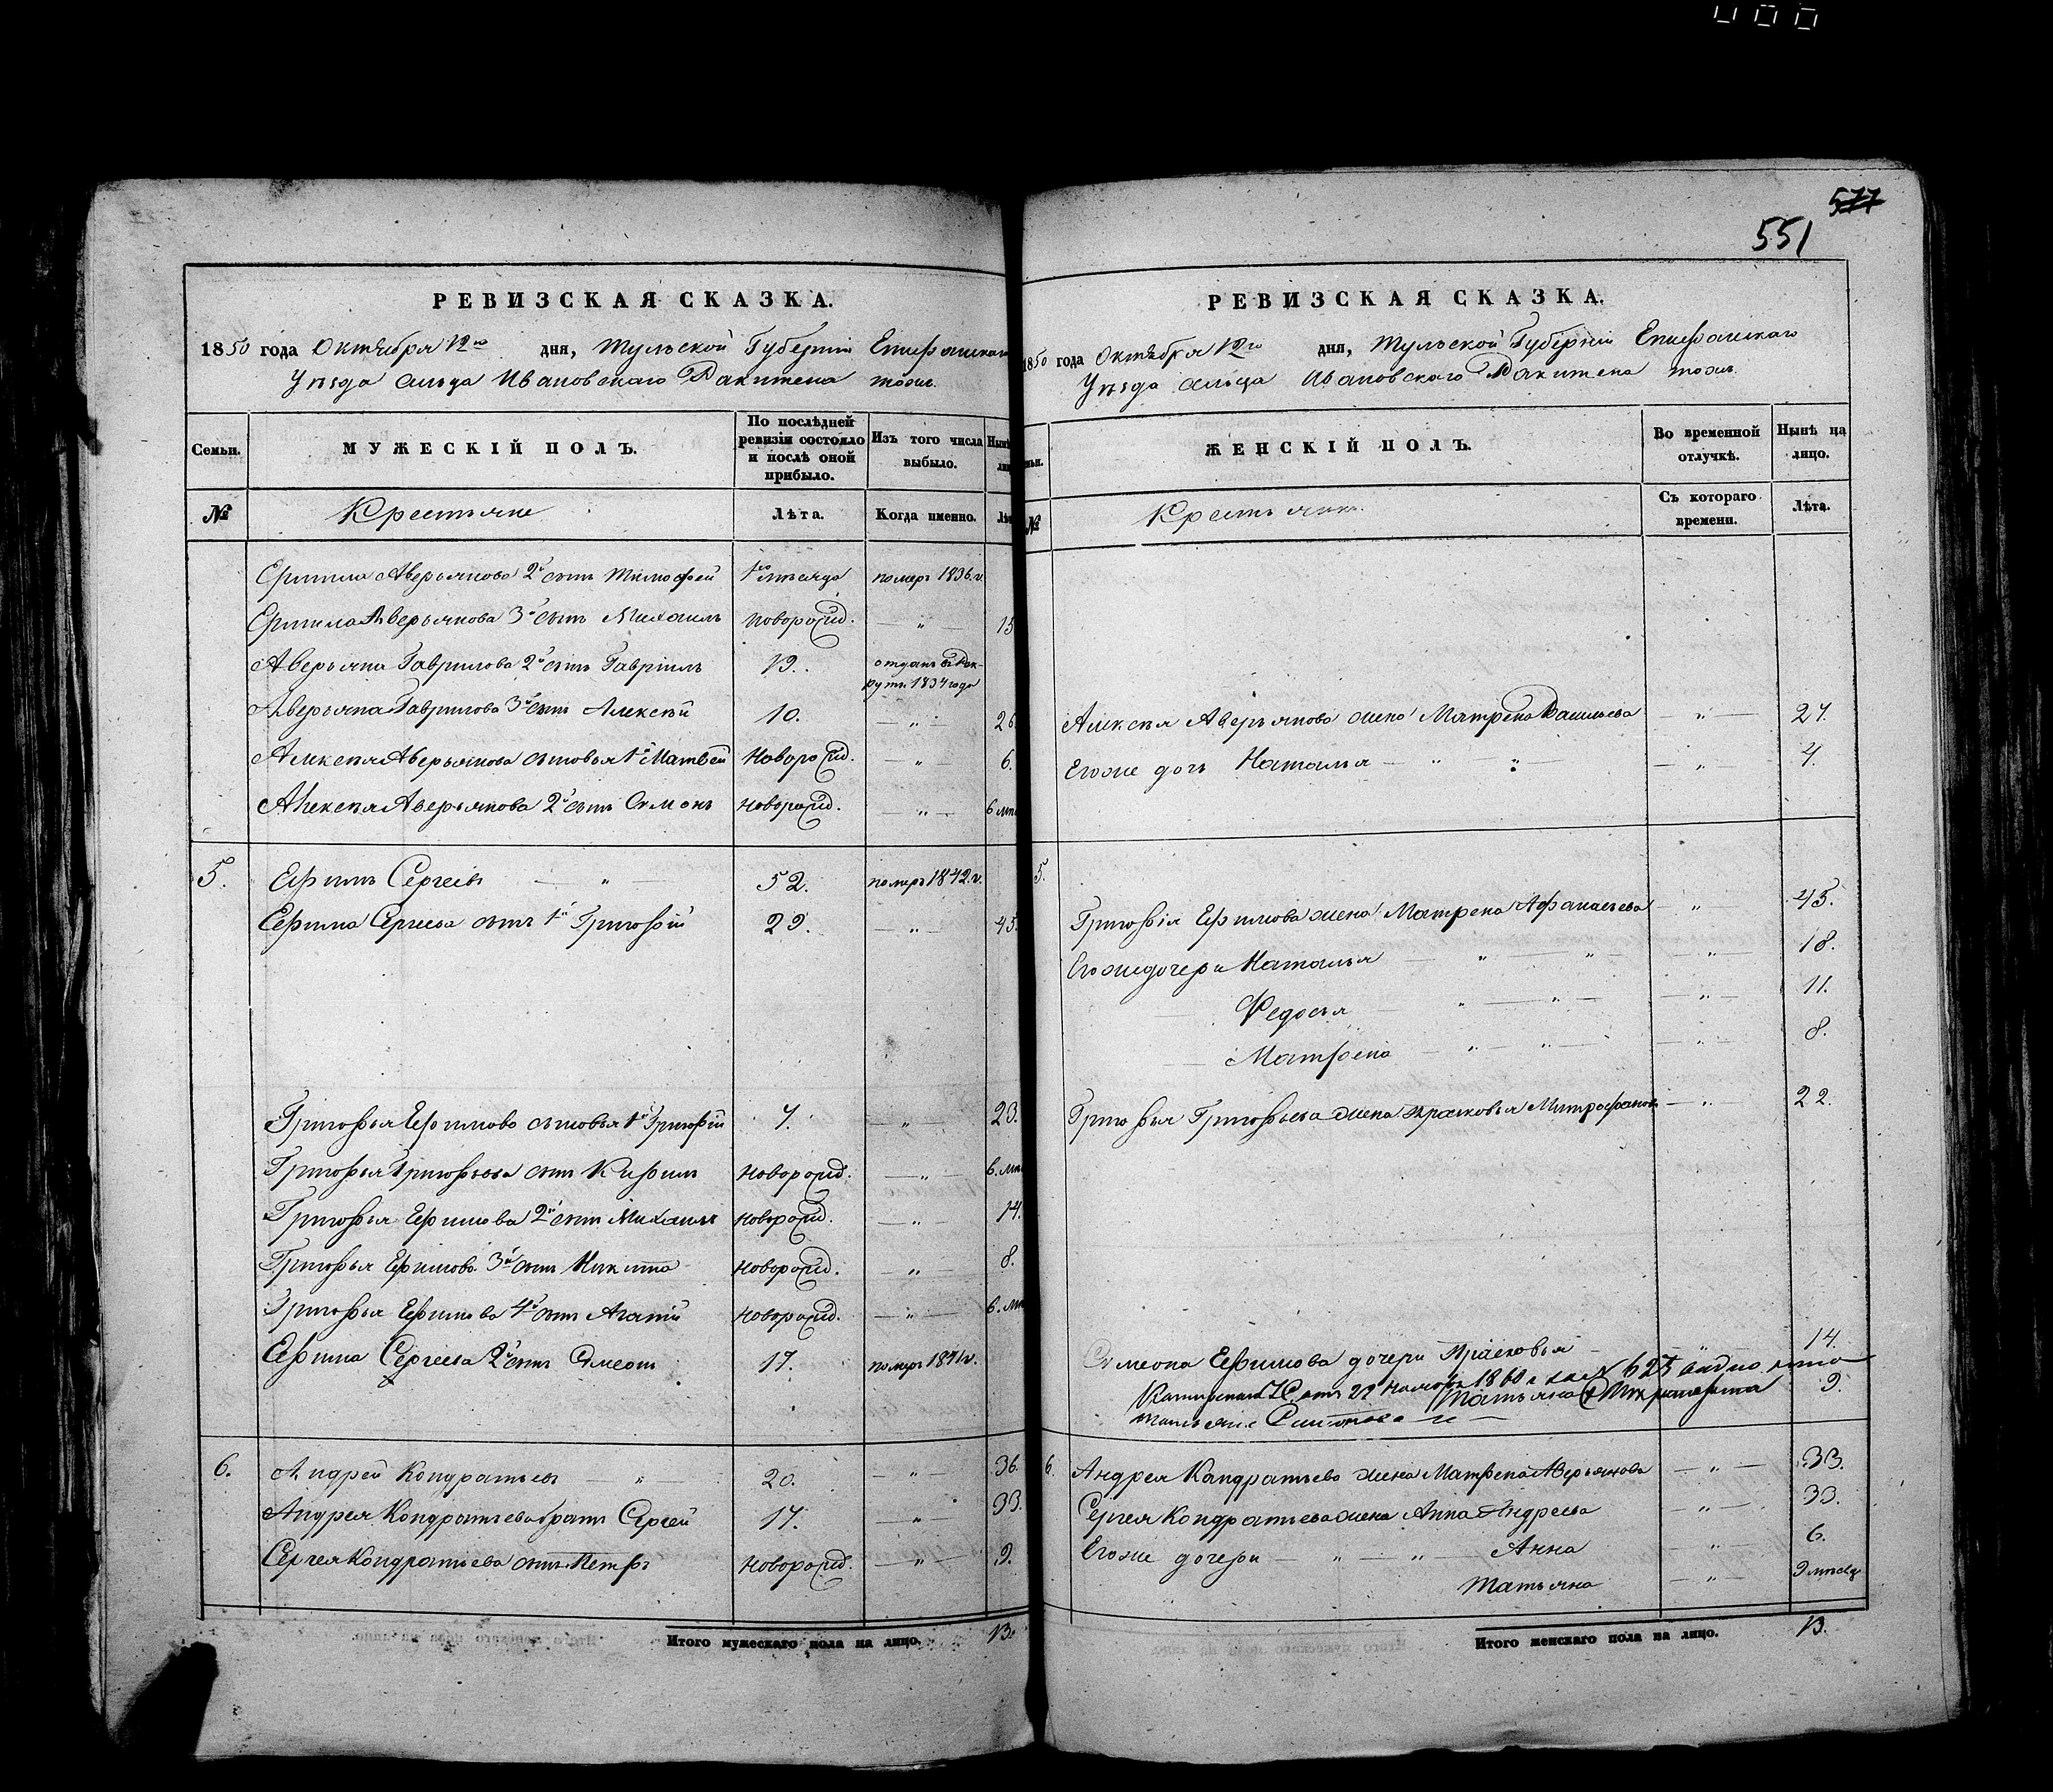 577
551
РЕВИЗСКАЯ СКАЗКА.
1850 года Октября 12го дня, Тульской Губерніи Епифанскаго
Уѣзда сельца Ивановскаго Ракитена тожъ.
Семьи. МУЖЕСКІЙ ПОЛЪ. По послѣдней ревизіи состояло и послѣ оной прибыло. Изъ того числа выбыло.
№ Крестьяне Лѣта. Когда именно.
Ермила Аверьянова 2й сынъ Тимофей померъ 1836.г.
Ермила Аверьянова 3й сынъ Михаилъ новорожд. — „ — 15
Аверьяна Гаврилова 2й сынъ Гавріилъ 12. отданъ въ Рек-
руты 1834 года
Аверьяна Гаврилова 3й сынъ Алексѣй 10. — „ — 26
Алексѣя Аверьянова сыновья 1й Матвей Новорожд. — „ — 6.
Алексѣя Аверьянова 2й сынъ Семонъ новорожд. — „ — 6 мѣ
5. Ефимъ Сергеевъ — „ — 52. померъ 1842.г.
Ефима Сергеева сынъ 1й Григорій 29. — „ — 45.
Григорья Ефимова сыновья 1й Григорій 7. — „ — 23.
Григорья Григорьева сынъ новорожд. — „ — 6. мѣ
Григорья Ефимова 2й сынъ Михаилъ новорожд. — „ — 14.
Григорья Ефимова 3й сынъ Никита новорожд. — „ — 8.
Григорья Ефимова 4й сынъ новорожд. — „ — 6. мѣ
Ефима Сергеева 2й сынъ Симеонъ 17. померъ 1841г.
6. Андрей Кондратьевъ — „ — 20. — „ — 36.
Андрея Кондратьева братъ Сергей 17. — „ — 33.
Сергея Кондратьева сынъ Петръ новорожд. — „ — 9.
Итого мужескаго пола на лицо. 13.
РЕВИЗСКАЯ СКАЗКА.
1850 года Октября 12го дня, Тульской Губерніи Епифанскаго
Уѣзда сельца Ивановскаго Ракитена тожъ.
ЖЕНСКІЙ ПОЛЪ. Во временной отлучкѣ. Нынѣ на лицо.
№ Крестьянки. Съ котораго времени. Лѣта.
Алексѣя Аверьянова жена Матрена Васильева — „ — 27.
Егоже дочь Наталья — „ — „ — — „ 4.
5.
Григорія Ефимова жена Матрена Афанасьева — „ — 45.
Егоже дочери Наталья — „ — „ — — „ — 18.
Федосья — „ — „ — — „ — 11.
Матрена — „ — „ — — „ — 8.
Григорья Григорьева жена Прасковья Митрофанова — „ — 22.
Симеона Ефимова дочери Прасковья — „ — 14.
22 1860 г. за № 625 видно что
Татьяна 9.
6. Андрея Кондратьева жена Матрена Аверьянова — „ — 33.
Сергея Кондратьева жена Анна Андреева — „ — 33.
Егоже дочери — „ — „ — Анна — „ — 6.
Татьяна — „ — 9 мѣсяц
Итого женскаго пола на лицо. 13.